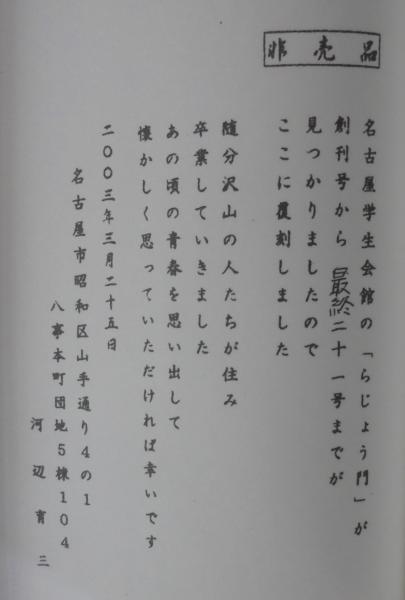 非売品
名古屋学生会館の「らじょう門」が
創刊号から最終二十一号までが
見つかりましたので
ここに覆刻しました
随分沢山の人たちが住み
卒業していきました
あの頃の青春を思い出して
懐かしく思っていただければ幸いです
二〇〇三年三月二十五日
名古屋市昭和区山手通り4の1
八事本町団地5棟104
河辺育三